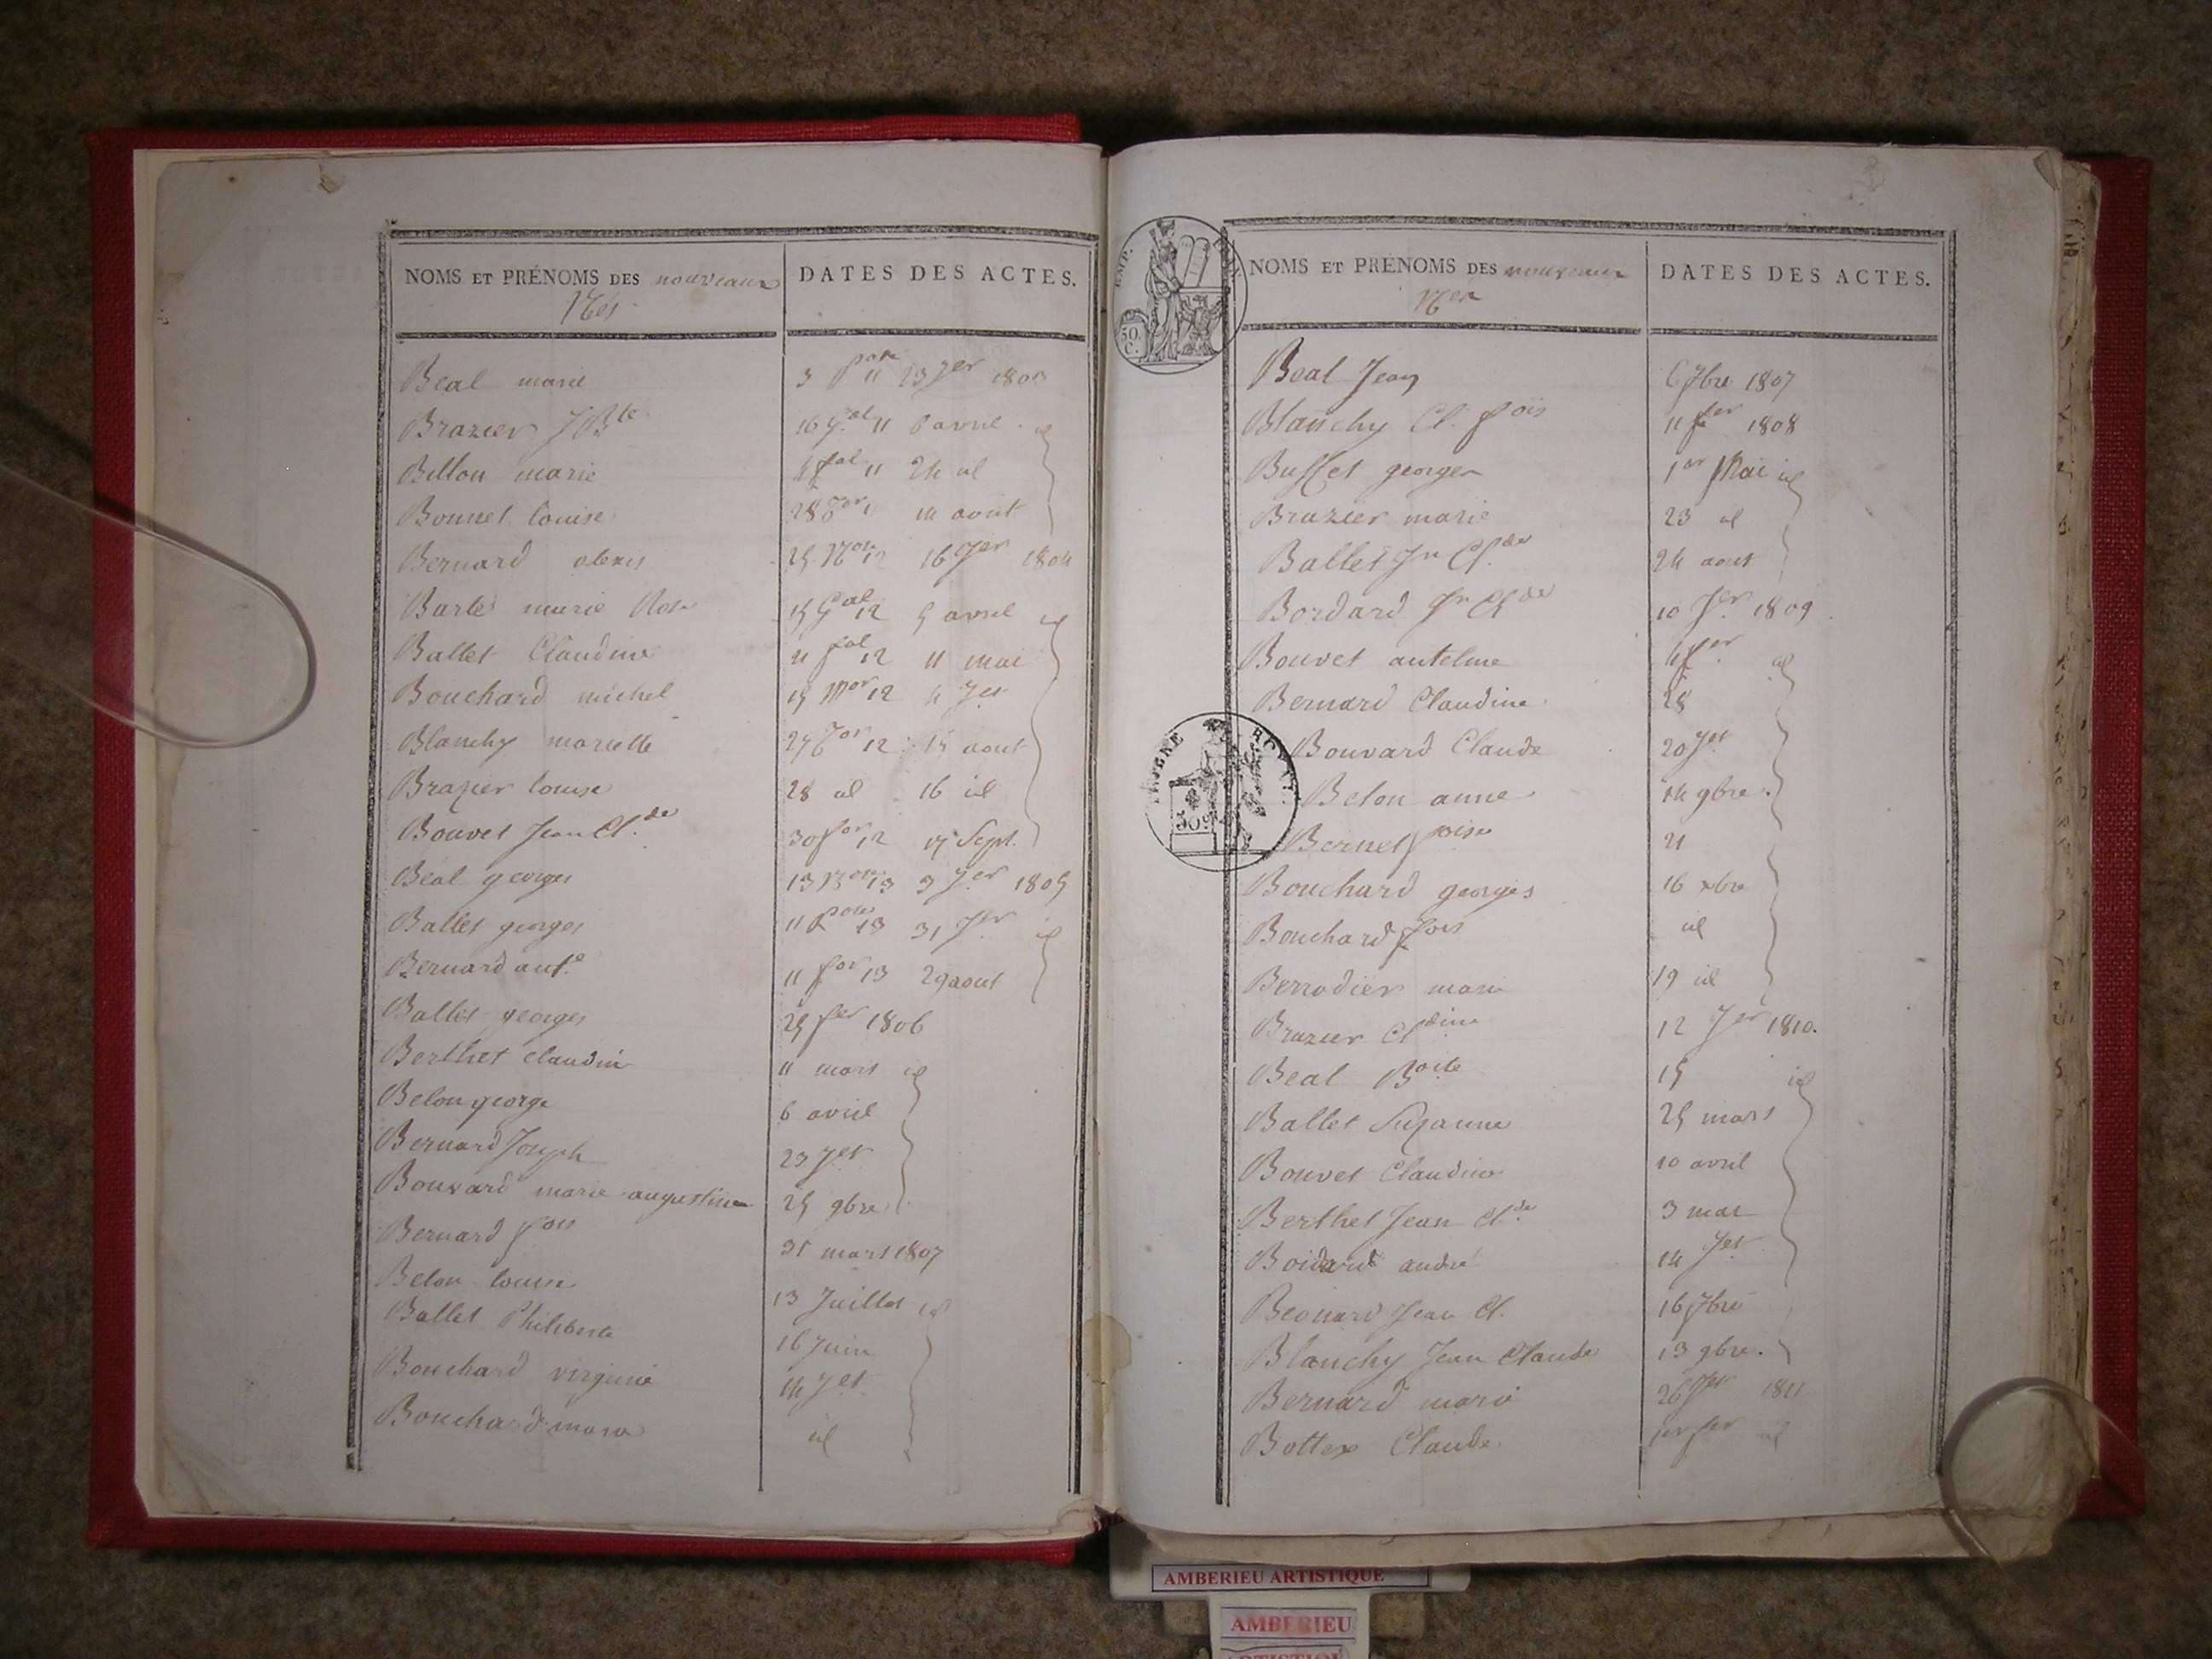 NOMS ET PRÉNOMS DES nouveaux DATES DES ACTES.
Nés
Béal marie 3 11 23 Jer 1803
Brazier JBte 16 Gal 11 6 avril id
Billon marie 4 fal 11 24 id
Bonnet louise 28 11 avril
Bernard alexis 25 12 16 Jer 1804
Barlet marie Rose 15 Gal 12 5 avril id
Ballet Claudine 21 fal 12 11 mai
Bouchard michel 15 Mor 12 4 Jet
Blanchy mariette 27 Tor 12 15 aout
Brazier louise 28 id 16 id
Bouvet Jean Cl.de 30 for 12 17 Sept.
Béal georges 13 13 3 Jer 1805
Ballet georges 11 13 31 Jer id
Bernard ant.e 11 for 13 29 aout
Ballet georges 25 fer 1806
Berthet claudine 11 mars id
Belon george 6 avril
Bernard Joseph 23 Jet
Bouvard marie augustine 25 9bre
Bernard fois 31 mars 1807
Belon louise 13 Juillet id
Ballet Philiberte 16 Juin
Bouchard virginie 14 Jet
Bouchard maria id
EMP.
50. C.
NOMS ET PRÉNOMS DES nouveaux DATES DES ACTES.
Nés
Béal Jean 7bre 1807
Blanchy Cl. fois 11 fer 1808
Buffet georges 1er Mai id
Brazier marie 23 id
Ballet Jn Cl.de 24 aout
Bordard Jn Clde 10 Jer 1809
Bouvet antelme 4 fer id
Bernard Claudine 28
Bouvard Claude 20 Jet
Belon anne 14 9bre
Bernet foise 21
Bouchard georges 16 xbre
Bouchard fois id
Berrodier marie 19 id
Brazier Cldine 12 Jer 1810.
Béal Boite 15 id
Ballet Suzanne 25 mars
Bouvet Claudine 10 avril
Berthet Jean Cl.de 3 mai
Boidard andré 14 Jet
Bernard Jean Cl. 16 7bre
Blanchy Jean Claude 13 9bre.
Bernard marie 26 Jer 1811
Bottex Claude 1er fer id
AMBERIEU ARTISTIQUE
AMBERIEU
ARTISTIQUE